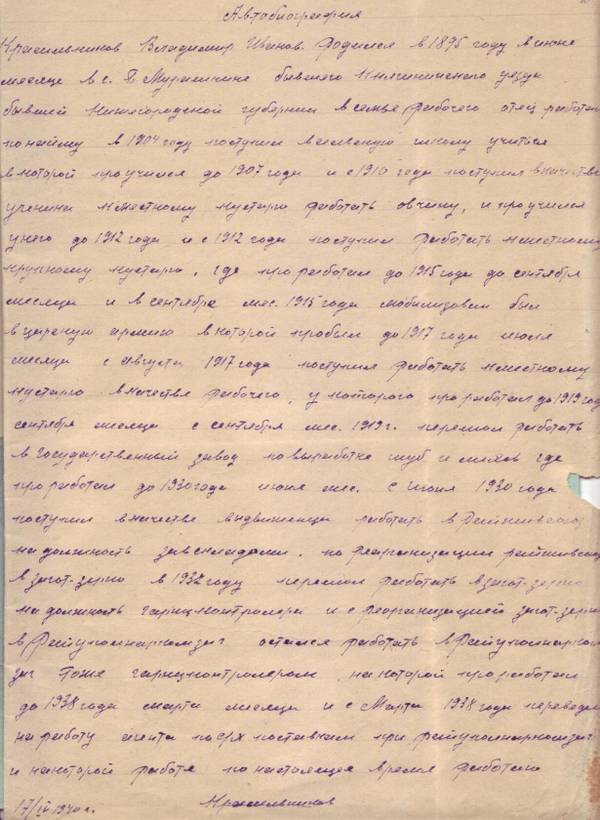 Автобиография
Красильников Владимир Иванов. Родился в 1895 году в июне
месяце в с. Б. Мурашкине бывшего Княгининского уезда
бывшей Нижегородской губернии в семье рабочего отец работал
по найму в 1904 году поступил в сельскую школу учиться
в которой проучился до 1907 года и с 1910 года поступил в качестве
ученика к местному кустарю работать овчину, и проучился
у него до 1912 года и с 1912 года поступил работать к местному
крупному кустарю, где проработал до 1915 года до сентября
месяца и в сентябре мес. 1915 года мобилизован был
в царскую армию в которой пробыл до 1917 года июля
месяца с августа 1917 года поступил работать к местному
кустарю в качестве рабочего, у которого проработал до 1919 год
сентября месяца с сентября мес. 1919 г. перешол работать
в государственный завод по выработке шуб и мехов где
проработал до 1930 года июня мес. с июня 1930 года
поступил в качестве выдвиженца работать в
на должность завскладами. по реорганизации
в загот-зерно в 1932 году перешол работать в загот-зерно
на должность гарнцконтролера и с реорганизацией загот-зерно
в Райуполнаркомзаг остался работать в Райуполнарком
заг тоже гарнцконтролером, на которой проработал
до 1938 года марта месяца и с Марта 1938 года переведен
на работу агента по с/х поставкам при райуполнаркомзаг
и на которой работе по настоящее время работаю
17/IV 1940 г. Красильников